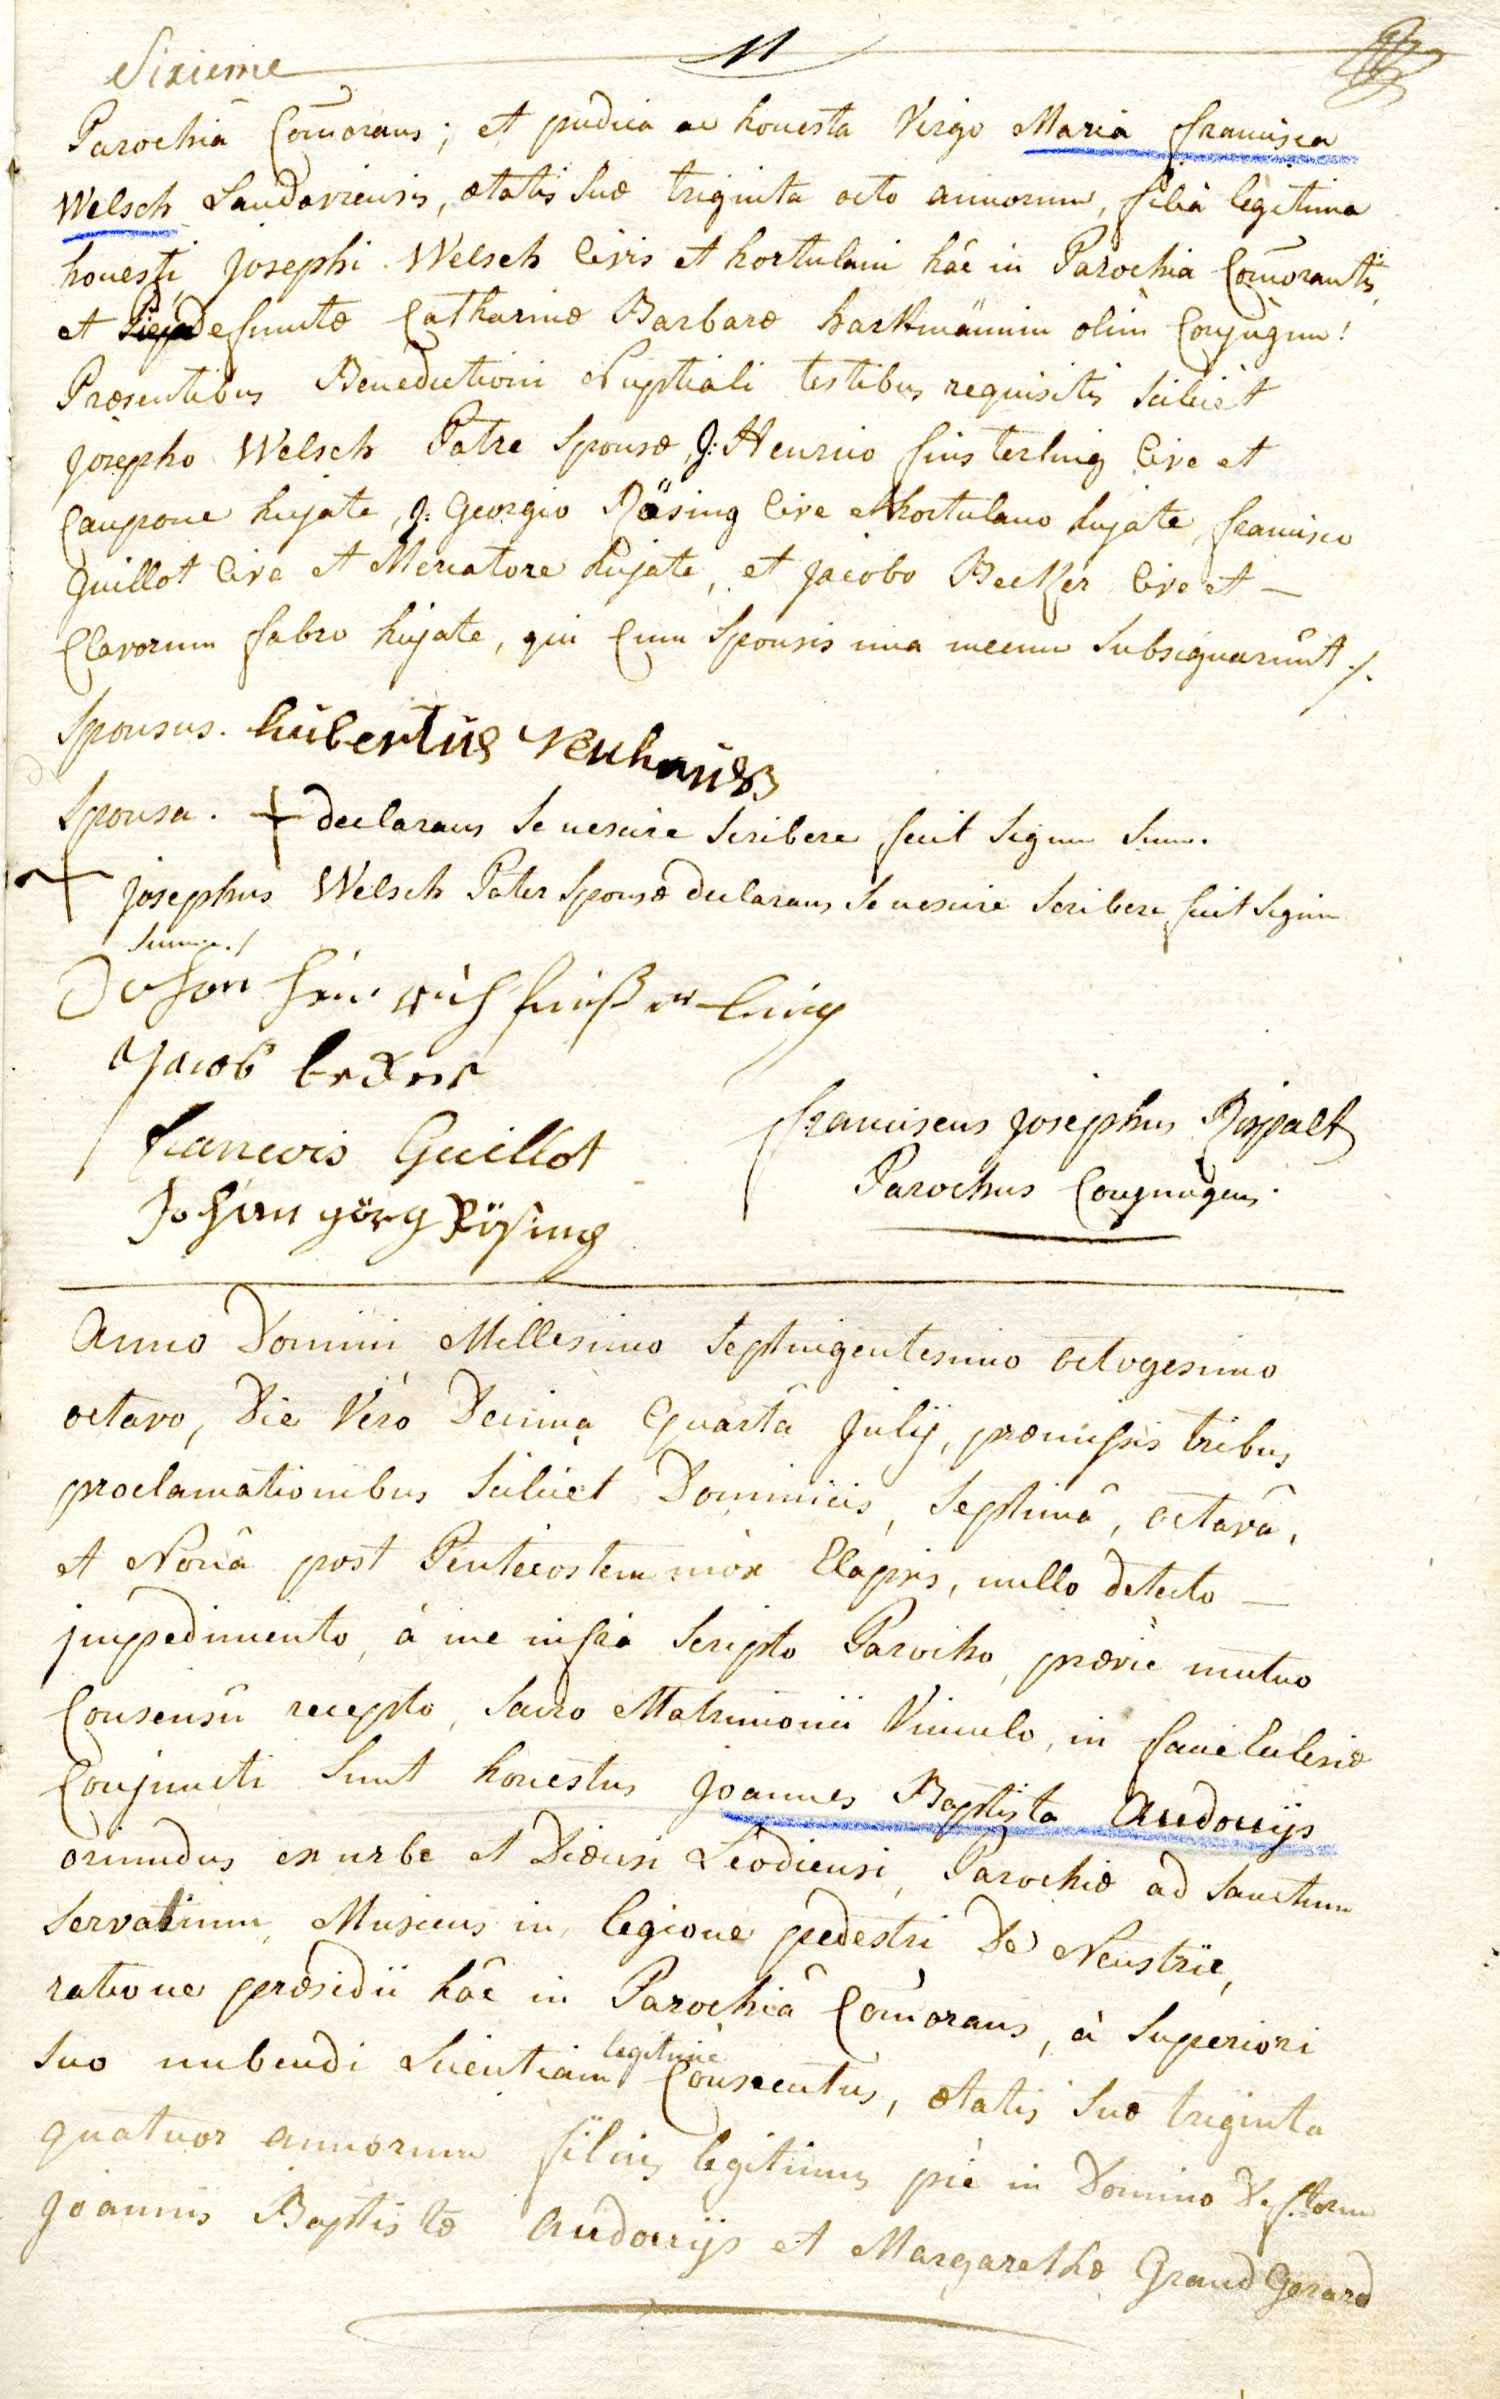 Sixieme 11
Parochiâ Com̄orans; et pudica ac honesta Virgo Maria francisca
Welsch Landaviensis, ætatis suæ triginta octo annorum, filia legitima
honesti Josephi Welsch Civis et hortulani hâc in Parochia Com̄orantis,
et defunctæ Catharinæ Barbaræ harttmännin olim Conjugum!
Præsentibus Benedictioni Nuptiali testibus requisitis scilicèt
Josepho Welsch Patre Sponsæ, J: Henrico finsterling Cive et
Caupone hujate, J: Georgio Rösing Cive et hortulano hujate, francisco
Guillot Cive et Mercatore hujate, et Jacobo Becker Cive et —
Clavorum fabro hujate, qui Cum Sponsis una mecum Subsignarunt ./.
Sponsus. hubertus Neuhauss
Sponsa. + declarans se nescire scribere fecit signum suum.
+ Josephus Welsch Pater Sponsæ declarans se nescire scribere fecit signum
suum ./
Johan heinrich finsterling
Jacob becker
francois Guillot
Johan görg Rösing
franciscus Josephus Rispalt
Parochus Conjungens.
Anno Domini Millesimo Septingentesimo octogesimo
octavo, Die Verò Decima Quartâ Julij, præmissis tribus
proclamationibus scilicèt Dominicis, Septimâ, octavâ,
et Nonâ post Pentecostem mòx Elapsis, nullo detecto —
jmpedimento, à me infrà scripto Parocho, præviè mutuo
Consensû recepto, Sacro Matrimonii Vinculo, in facie Ecclesiæ
Conjuncti Sunt honestus Joannes Baptista Audouijs
oriundus ex urbe et Diœcesi Leodiensi, Parochiæ ad Sanctum
Servatium, Musicus in legione pedestri De Neustrie,
ratione præsidii hâc in Parochiâ Com̄orans, à Superiori
suo nubendi Licentiam legitimè Consecutus, ætatis suæ triginta
quatuor annorum filius legitimus piè in Domino Defctorum
Joannis Baptistæ Audouijs et Margarethæ Grand Gerard